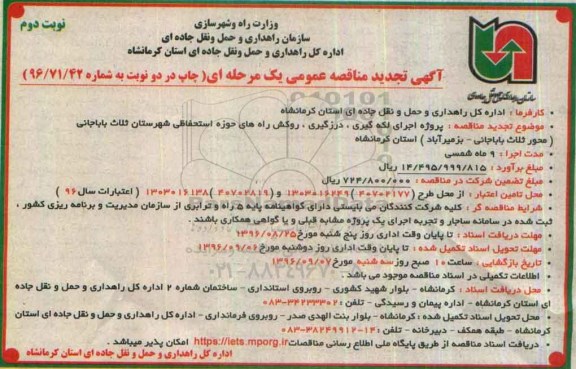 نوبت دوم
وزارت راه وشهرسازی
سازمان راهداری و حمل ونقل جاده ای
اداره کل راهداری و حمل ونقل جاده ای استان کرمانشاه
آگهی تجدید مناقصه عمومی یک مرحله ای( چاپ در دو نوبت به شماره ۹۶/۷۱/۴۲)
کارفرما : اداره کل راهداری و حمل و نقل جاده ای استان کرمانشاه
موضوع تجدید مناقصه : پروژه اجرای لکه گیری ، درزگیری ، روکش راه های حوزه استحفاظی شهرستان ثلاث باباجانی
( محور ثلاث باباجانی - بزمیرآباد ) استان کرمانشاه
مدت اجرا : ۹ ماه شمسی
مبلغ برآورد : ۱۴/۴۹۵/۹۹۹/۸۱۵ ریال
مبلغ تضمین شرکت در مناقصه : ۷۲۴/۸۰۰/۰۰۰ ریال
محل تامین اعتبار : از محل طرح ( ۴۰۷۰۲۱۷۷ ) ۱۳۰۳۰۱۶۲۴۹ و (۴۰۷۰۲۸۱۹) ۱۳۰۳۰۱۶۱۳۸ ( اعتبارات سال ۹۶ )
شرایط مناقصه گر : کلیه شرکت کنندگان می بایستی دارای گواهینامه پایه ۵ راه و ترابری از سازمان مدیریت و برنامه ریزی کشور ،
ثبت شده در سامانه ساجار و تجربه اجرای یک پروژه مشابه قبلی و یا گواهی همکاری باشند .
مهلت دریافت اسناد : تا پایان وقت اداری روز پنج شنبه مورخ ۱۳۹۶/۰۸/۲۵
مهلت تحویل اسناد تکمیل شده : تا پایان وقت اداری روز دوشنبه مورخ ۱۳۹۶/۰۹/۰۶
تاریخ بازگشایی : ساعت ۱۰ صبح روز سه شنبه مورخ ۱۳۹۶/۰۹/۰۷
اطلاعات تکمیلی در اسناد مناقصه موجود می باشد .
محل دریافت اسناد : کرمانشاه - بلوار شهید کشوری - روبروی استانداری - ساختمان شماره ۲ اداره کل راهداری و حمل و نقل جاده
ای استان کرمانشاه - اداره پیمان و رسیدگی - تلفن : ۰۸۳-۳۴۲۳۳۳۰۲
محل تحویل اسناد تکمیل شده : کرمانشاه - بلوار بنت الهدی صدر - روبروی فرمانداری - اداره کل راهداری و حمل و نقل جاده ای استان
کرمانشاه - طبقه همکف - دبیرخانه - تلفن : ۱۴-۰۸۳-۳۸۲۴۹۹۱۲
دریافت اسناد مناقصه از طریق پایگاه ملی اطلاع رسانی مناقصات https://iets.mporg.ir امکان پذیر میباشد .
اداره کل راهداری و حمل و نقل جاده ای استان کرمانشاه